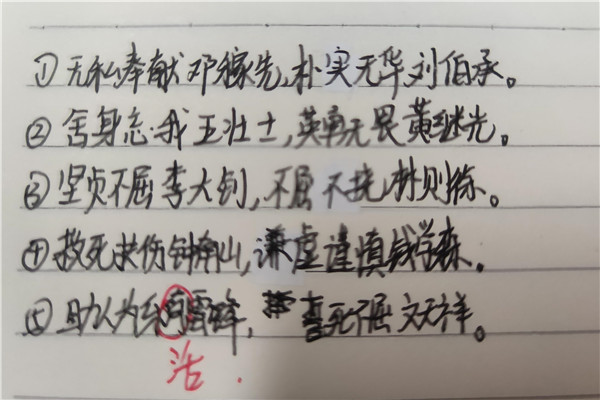 ①无私奉献邓稼先,朴实无华刘伯承。
②舍身忘我王壮士,英勇无畏黄继光。
③坚贞不屈李大钊,不屈不挠林则徐。
④救死扶伤钟南山,谦虚谨慎钱学森。
⑤助人为乐雷锋,死不屈文天祥。